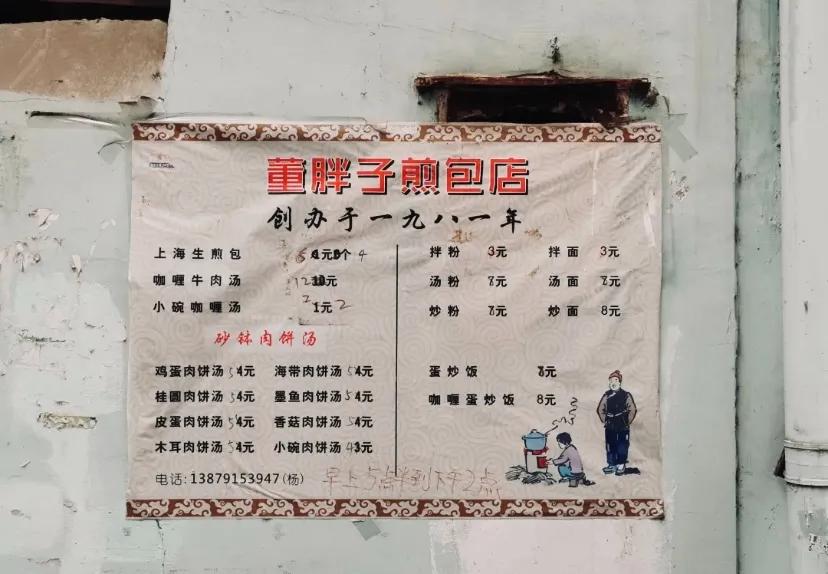 董胖子煎包店
创办于一九八一年
上海生煎包
咖喱牛肉汤
小碗咖喱汤 1元 2
砂钵肉饼汤
鸡蛋肉饼汤 5 4元 海带肉饼汤 5 4元
桂圆肉饼汤 5 4元 墨鱼肉饼汤 5 4元
皮蛋肉饼汤 5 4元 香菇肉饼汤 5 4元
木耳肉饼汤 5 4元 小碗肉饼汤 4 3元
电话:13879153947(杨)
拌粉 3元 拌面 3元
汤粉 7元 汤面 7元
炒粉 7元 炒面 8元
蛋炒饭
咖喱蛋炒饭 8元
早上5点半到下午2点